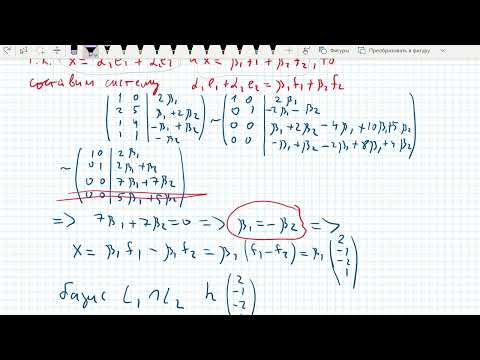 Фигуры Преобразовать в фигуру
т.к. x = α₁e₁ + α₂e₂ и x = β₁f₁ + β₂f₂, то
составим систему α₁e₁+α₂e₂ = β₁f₁+β₂f₂
( 1 0 | 2β₁ ) ~ ( 1 0 | 2β₁ )
( 2 5 | β₁+2β₂ ) ( 0 1 | -2β₁-β₂ )
( 1 4 | -β₁+β₂ ) ( 0 0 | β₁+2β₂-4β₁+10β₁+5β₂ )
( 1 1 | -β₂ ) ( 0 0 | -β₁+β₂-2β₁+8β₁+4β₂ )
~ ( 1 0 | 2β₁ )
( 0 1 | 2β₁+β₂ )
( 0 0 | 7β₁+7β₂ )
( 0 0 | 5β₁+5β₂ )
=> 7β₁+7β₂=0 => β₁=-β₂ =>
x = β₁f₁ - β₁f₂ = β₁(f₁-f₂) = β₁ ( 2 -1 -2 1 )
базис L₁∩L₂ h ( 2 -1 -2